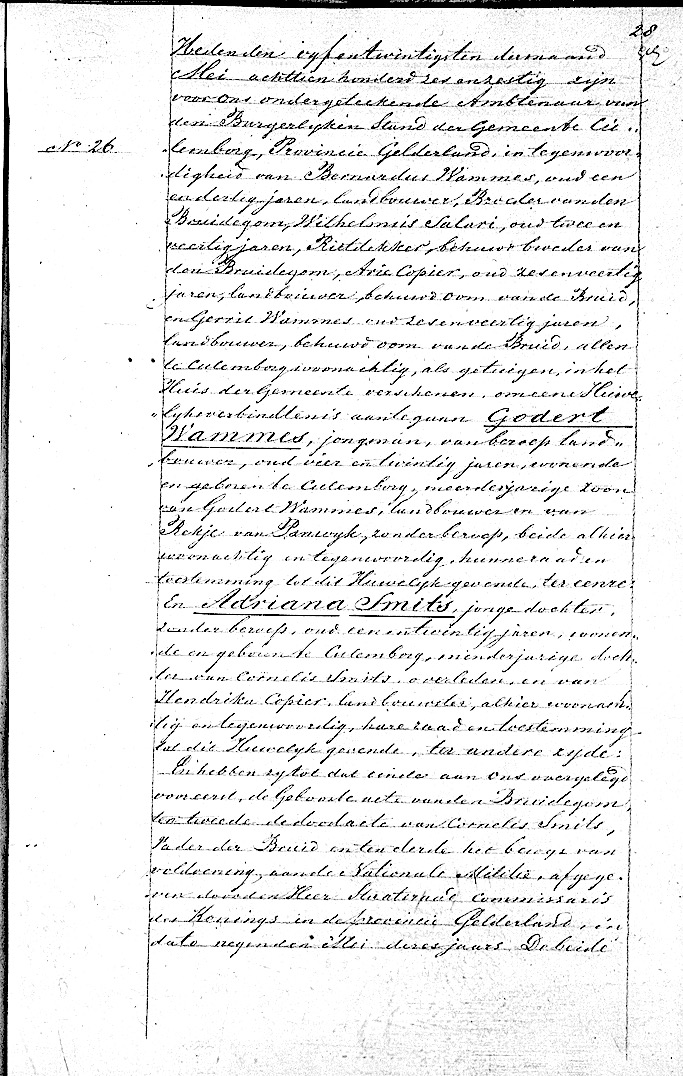 28
Heden den vyfentwintigsten der maand
Mei achttien honderd zes en zestig zyn
voor ons ondergeteekende Ambtenaar van
den Burgerlyken Stand der Gemeente Cu„
No 26
lemborg, Provincie Gelderland, in tegenwoor„
digheid van Bernardus Wammes, oud een
en dertig jaren, landbouwer, Broeder van den
Bruidegom, Wilhelmus Salari, oud twee en
veertig jaren, Rietdekker, behuwd broeder van
den Bruidegom, Arie Copier, oud zes en veertig
jaren, landbouwer, behuwd oom van de Bruid,
en Gerrit Wammes oud zes en veertig jaren,
landbouwer, behuwd oom van de Bruid, allen
te Culemborg woonachtig, als getuigen, in het
Huis der Gemeente verschenen, om eene Huwe„
lyksverbindtenis aan te gaan Godert
Wammes, jongman, van beroep land„
bouwer, oud vier en twintig jaren, wonende
en geboren te Culemborg, meerderjarige zoon
van Godert Wammes, landbouwer en van
van Panwyk, zonder beroep, beide alhier
woonachtig en tegenwoordig, hunne raad en
toestemming tot dit Huwelyk gevende, ter eenre:
En Adriana Smits, jonge dochter,
zonder beroep, oud een en twintig jaren, wonen„
de en geboren te Culemborg, minderjarige doch„
ter van Cornelis Smits, overleden, en van
Hendrika Copier, landbouwster, alhier woonach„
tig en tegenwoordig, hare raad en toestemming
tot dit Huwelyk gevende, ter andere zyde:
En hebben zy tot dat einde aan ons overgelegd
vooreerst, de Geboorte acte van den Bruidegom,
ten tweede de dood acte van Cornelis Smits,
Vader der Bruid en ten derde het bewys van
voldoening aan de Nationale Militie, afgege„
ven door den Heer Staatsraad Commissaris
des Konings in de provincie Gelderland, in
dato negenden Mei dezes jaars. De beide